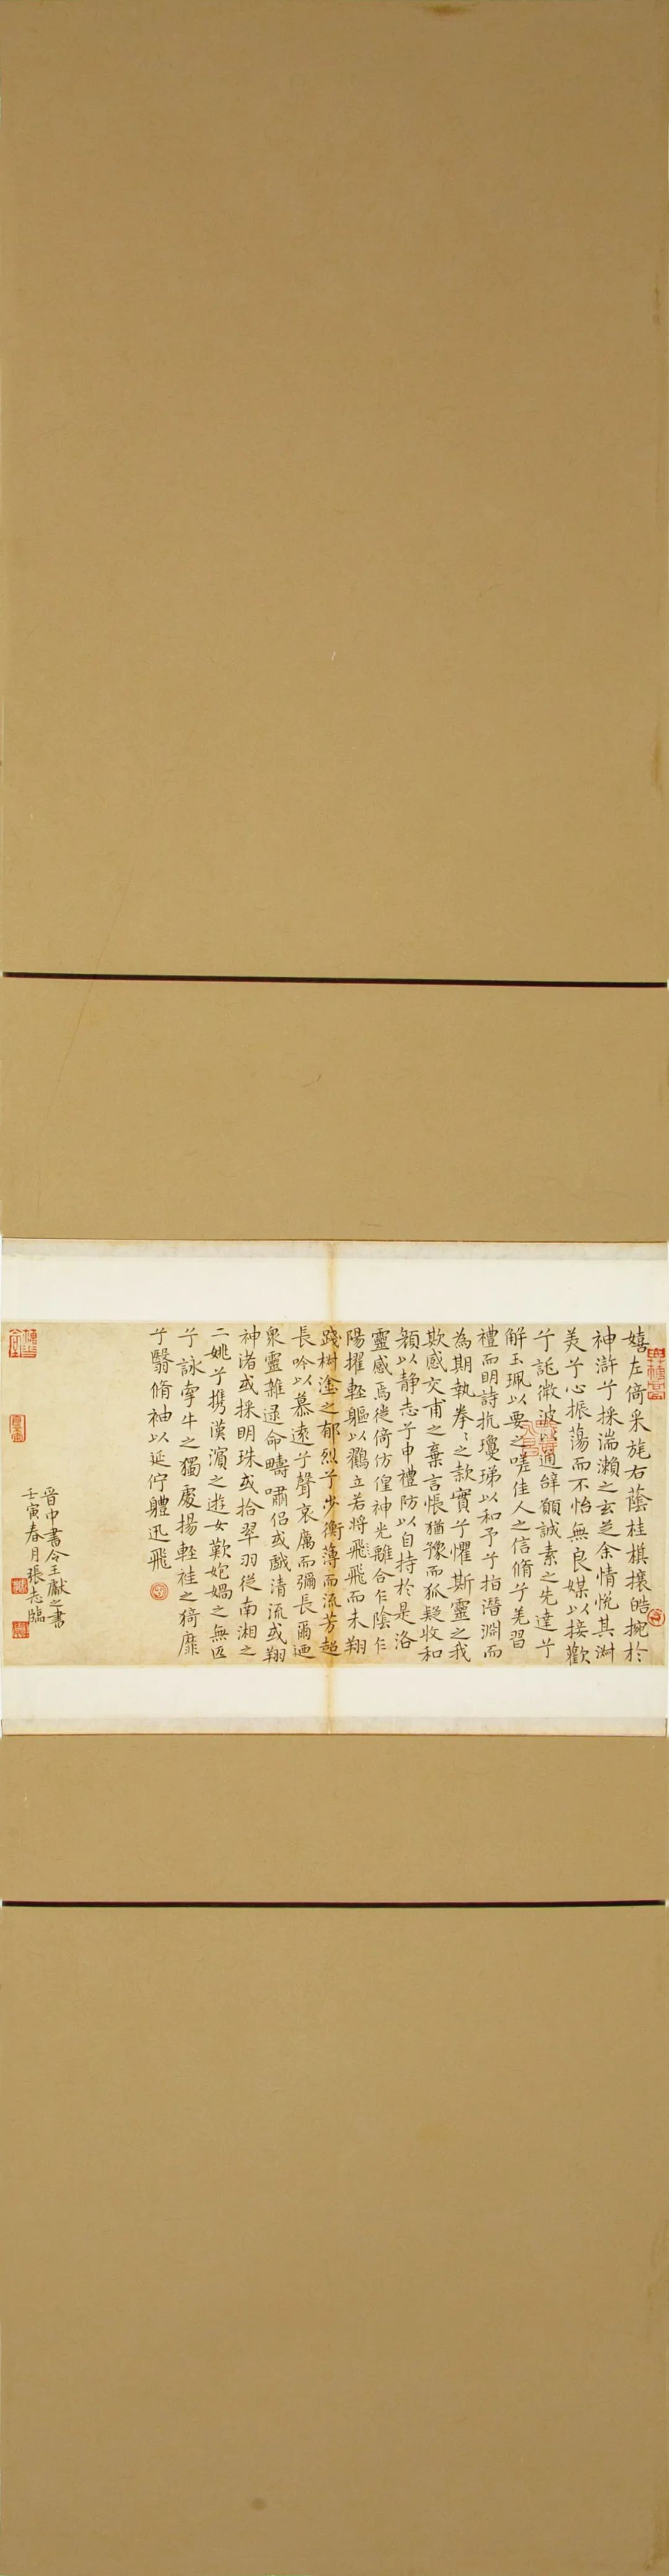 嬉左倚采旄右蔭桂棋攘皓捥於
神滸兮採湍瀨之玄芝余情悅其淑
美兮心振蕩而不怡無良媒以接歡
兮託微波以通辭願誠素之先達兮
解玉珮以要之嗟佳人之信脩兮羌習
禮而明詩抗瓊珶以和予兮指潛淵而
為期執拳〻之款實兮懼斯靈之我
欺感交甫之棄言悵猶豫而狐疑收和
顏以静志兮申禮防以自持於是洛
靈感焉徙倚仿偟神光離合乍陰乍
陽擢輕軀以鶴立若將飛飛而未翔
踐樹塗之郁烈兮步衡薄而流芳超
長吟以慕遠兮聲哀厲而彌長爾迺
眾靈雜遝命疇嘯侶或戲清流或翔
神渚或採明珠或拾翠羽從南湘之
二姚兮携漢濱之遊女歎媧之無匹
兮詠牽牛之獨處揚輕袿之猗靡
兮翳脩袖以延佇軆迅飛
晉中書令王獻之書
壬寅春月張志臨